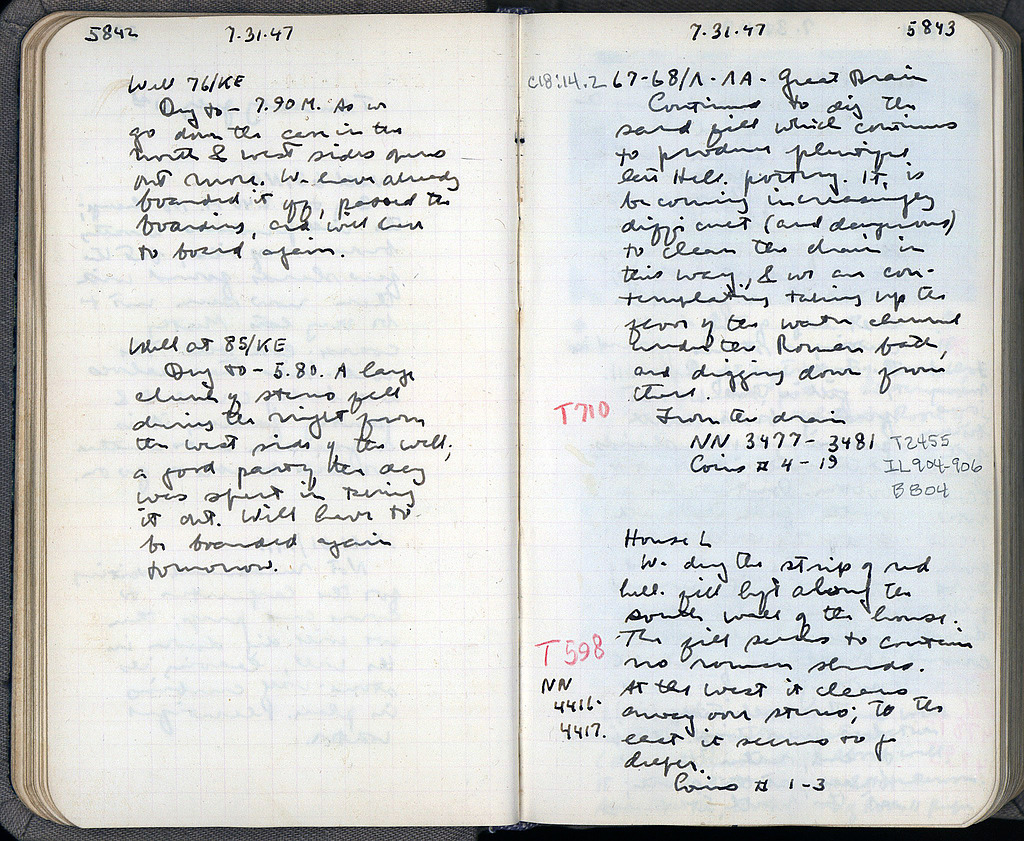 5842 7.31.47
Well 76/KE
Dug to - 7.90 M. As we
go down the cave in the
north & west sides opens
out more. We have already
boarded it off, passed the
boarding, and will have
to board again.
Well at 85/KE
Dug to - 5.80. A large
chunk of stereo fell
during the night from
the west side of the well;
a good part of the day
was spent in taking
it out. Will have to
be boarded again
tomorrow.
7.31.47 5843
C18:14.2 67-68/Λ-ΛΑ. Great Drain
Continued to dig the
sand fill which continues
to produce plentiful
late Hell. pottery. It is
becoming increasingly
difficult (and dangerous)
to clean the drain in
this way, & we are con-
templating taking up the
floor of the water channel
under the Roman bath,
and digging down from
there.
T710
From the drain
NN 3477-3481 T2455
Coins # 4-19 IL904-906
B804
House L
We dug the strip of red
hell. fill left along the
south wall of the house.
T598
The fill seems to contain
no roman sherds.
NN
4416-
4417.
At the west it cleans
away over stereo; to the
east it seems to go
deeper.
Coins # 1-3